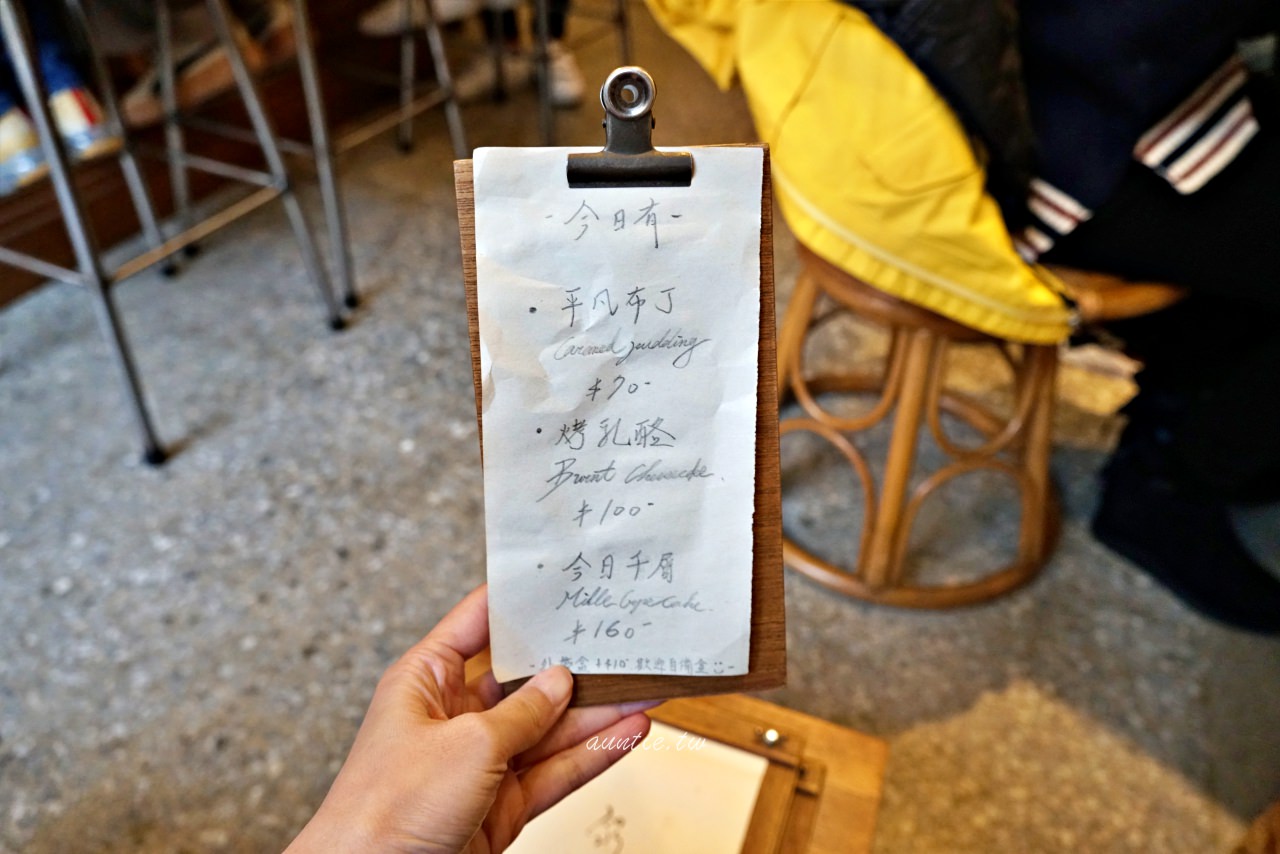 -今日有-
• 平凡布丁
Caramel pudding
$70-
• 烤乳酪
Burnt Cheesecake.
$100-
• 今日千層
Mille Crepe Cake.
$160-
-外帶盒+$10 歡迎自備盒:)-
auntie.tw